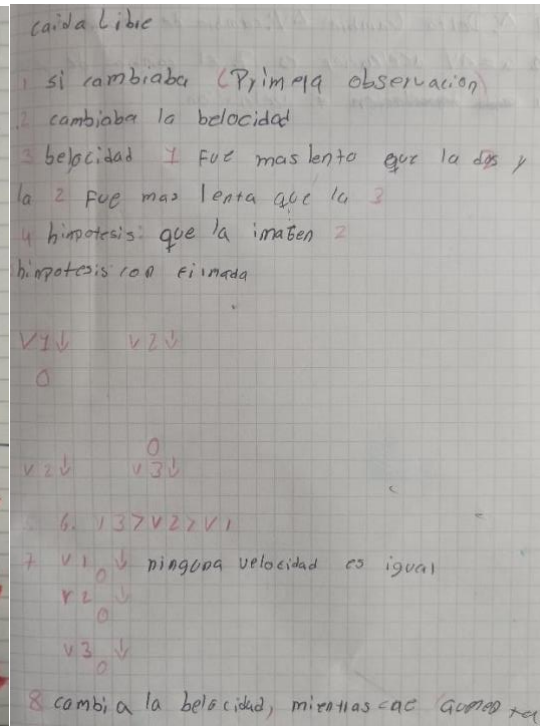 caida Libre
1 si cambiaba (Primera observacion)
2 cambiaba la belocidad
3 belocidad 1 Fue mas lento que la dos y
la 2 Fue mas lenta que la 3
4 himpotesis: que la imagen 2
himpotesis confirmada
V1↓ V2↓
0
0
v2↓ v3↓
6. V3>V2>V1
7 V1 0 ↓ ninguna velocidad es igual
V2 0 ↓
V3 0 ↓
8 cambia la belocidad, mientras cae aumenta